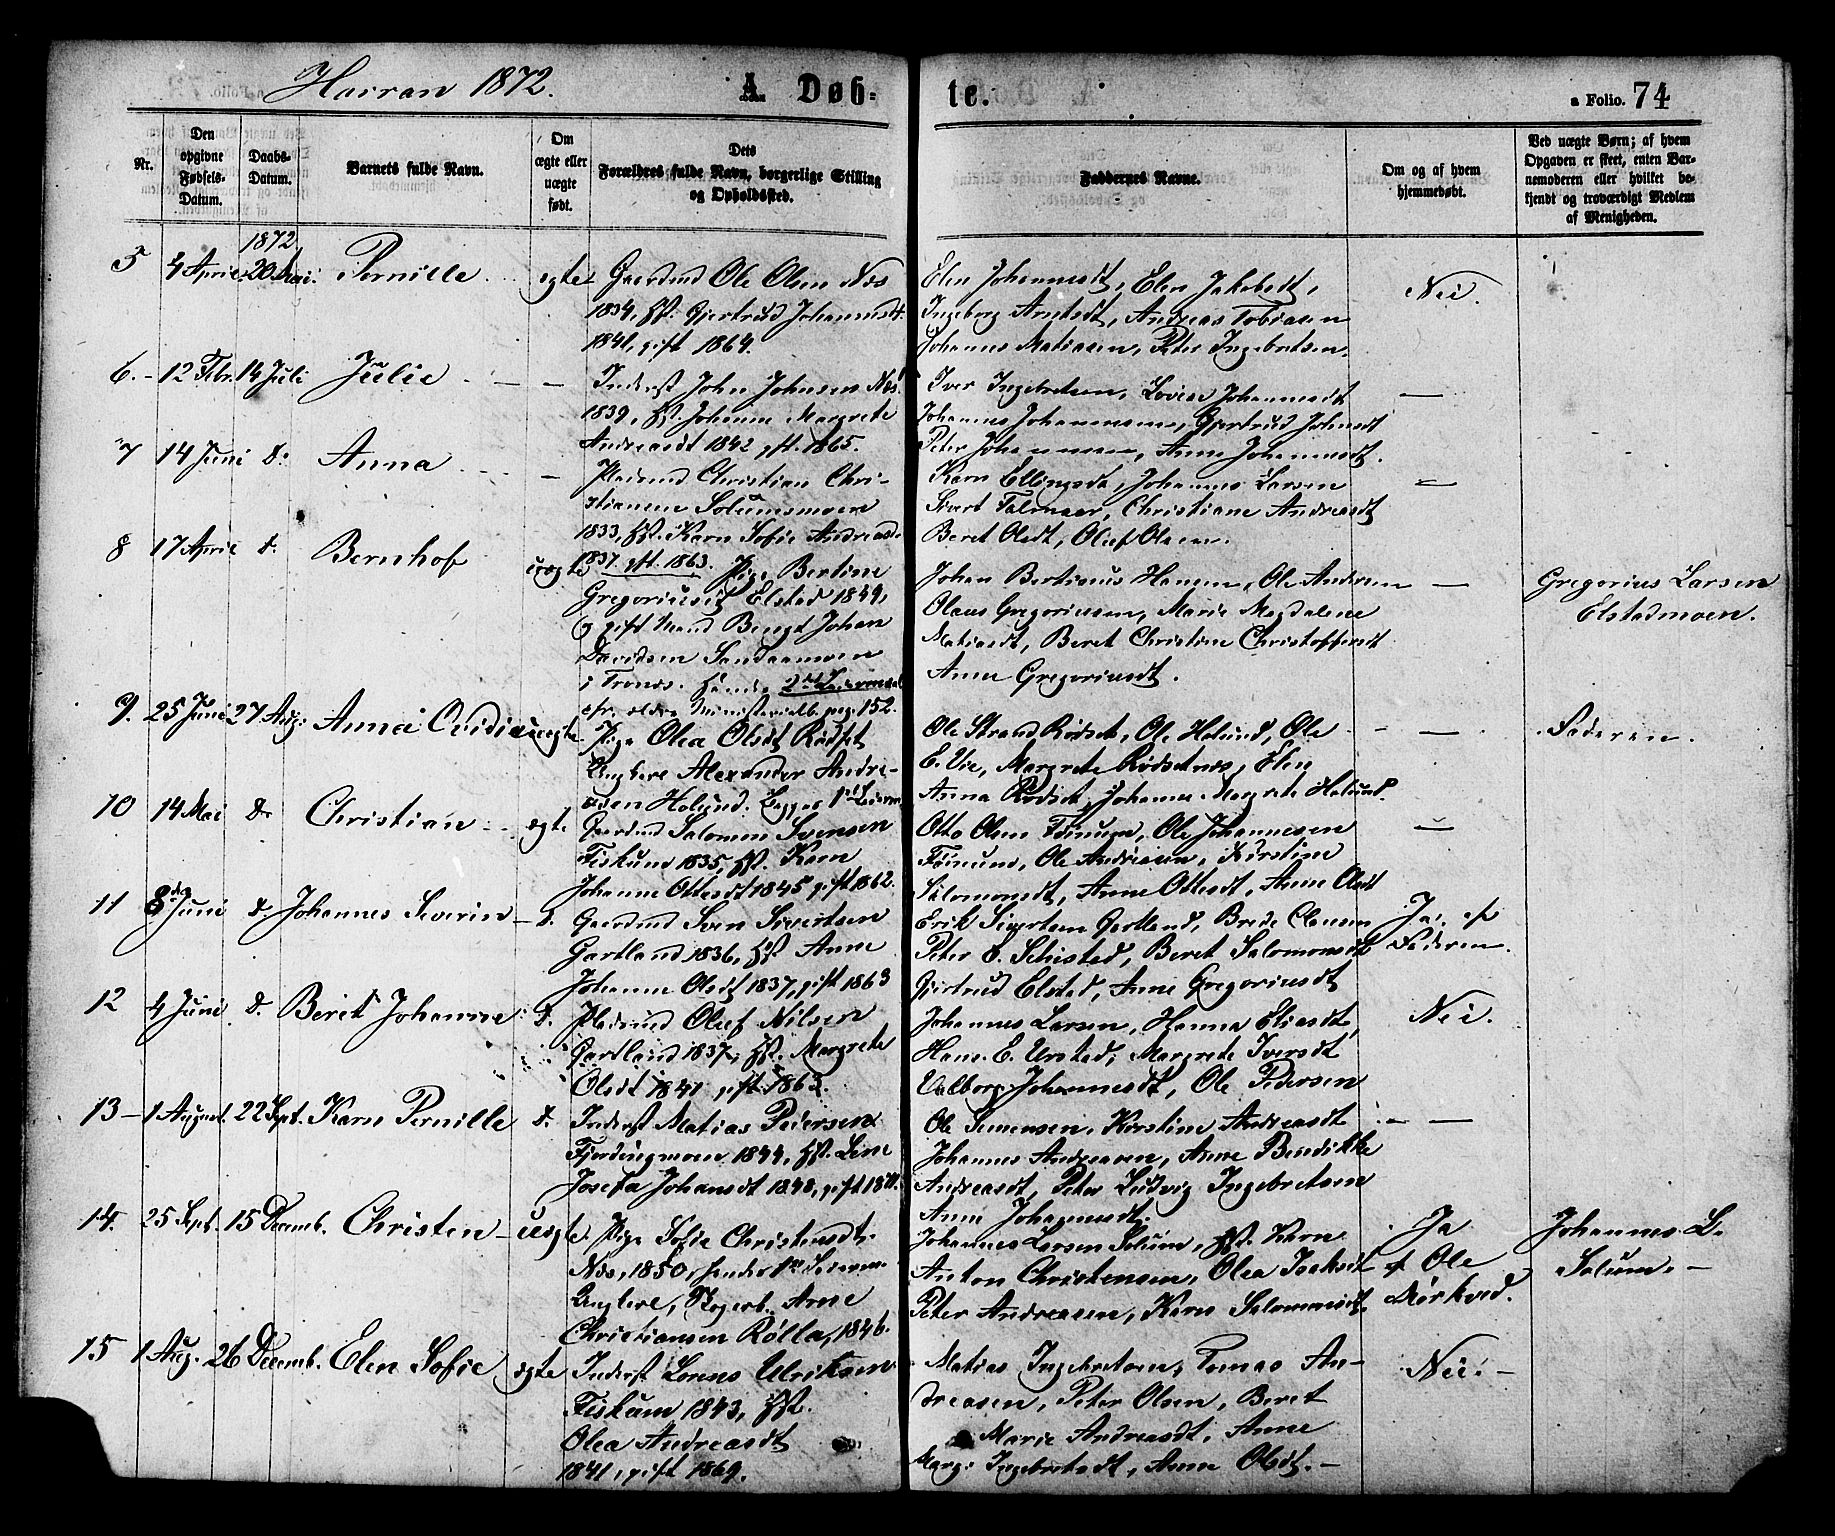 Harran 1872.
A. Døb-
te.
a Folio. 74
Nr.
Den opgivne Fødsels-Datum.
Daabs-Datum.
Barnets fulde Navn.
Om ægte eller uægte født.
Dets Forældres fulde Navn, borgerlige Stilling og Opholdssted.
Faddernes Navne.
Om og af hvem hjemmedøbt.
Ved uægte Børn; af hvem Opgaven er skeet, enten Barnemoderen eller hvilket bekjendt og troværdigt Medlem af Menigheden.
1872.
5 4 April 20 Mai Pernille ægte
Gaardmd Ole Olsen Næs
1834, Hst. Gjertrud Johannesdt.
1841, gift 1864.
Elen Johannesdt, Elen Jakobsdt,
Ingeborg Arntsdt, Andreas Tobiasen
Johannes Matiasen, Peter Ingebretsen.
Nei.
6. - 12 Febr. 14 Juli Julie - -
Inderst John Johnsen Næs
1839, Hst. Johanna Margrete
Andreasdt 1842 gft. 1865.
Iver Ingebretsen, Lovise Johannesdt
Johannes Johannesen, Gjertrud Johnsdt
Peter Johannesen, Anne Johannesdt.
—
7 14 Juni d. Anna -
Pladsmd Christian Chri-
stiansen Solumsmoen
1833, Hst. Karn Sofie Andreasd.
1837. gft. 1863.
Karn Ellingsdt, Johannes Larsen
Sivert Falmaar, Christiane Andreasdt
Beret Olsdt, Oluf Olsen.
—
8 17 April d. Bernhof uægte
Pige Bertine
Gregoriusdt Elstad 1849,
og gift Mand Bengt Johan
Davidsen Sandaamoen
i Tronæs. Hændes 2det Leiermaal
cfr. ældre Ministerialb. pag. 152.
Johan Bertinus Hansen, Ole Andersen
Olaus Gregoriussen, Marie Magdalene
Matiasdt, Beret Christine Christoffersdt
Anne Gregoriusdt.
—
Gregorius Larsen
Elstadmoen.
9. 25 Juni 27 Aug: Anna Ovidia uægte
Pige Olea Olsdt Rødset
Ungkarl Alexander Andre-
asen Holund. Begges 1st Leierm
Ole Strand Rødset, Ole Holund, Ole
E. Vie, Margrete Rødsetnes, Elen
Anna Rødset, Johanne Margrete Holund.
—
Faderen.
10 14 Mai d. Christian ægte
Gaardmd Salomon Svensen
Fiskum 1835, Hst. Karn
Johanne Ottesdt 1845 gift 1862.
Otto Olsen Fømum, Ole Johannesen
Fømum, Ole Andreasen, Kirstine
Salomonsdt, Anne Ottesdt, Anne Olsdt
—
11 8de Juni d. Johannes Severin - d.
Gaardmd Sven Sivertsen
Gartland 1836, Hst. Anne
Johanna Olsdt 1837, gift 1863
Erik Sivertsen Gartland, Brede Clausen
Peter E. Schistad, Beret Salomonsdt
Gjertrud Elstad, Anne Gregoriusdt
Ja, af
Faderen.
12 4 Juni d. Beret Johanne d.
Pladsmd Oluf Nilsen
Gartland 1837, Hst. Margrete
Olsdt 1841 gift 1863.
Johannes Larsen, Hanna Eliasdt,
Hans E. Urstad, Margrete Iversdt
Valborg Johannesdt, Ole Pedersen
Nei.
13 - 1 August. 22 Sept. Karn Pernille d.
Inderst Matias Pedersen
Fjerdingmoen 1844, Hst. Line
Josefa Johansdt 1848, gift 1870.
Ole Simensen, Kirstine Andreasdt
Johannes Andreasen, Anne Bendikke
Andreasdt, Peter Ludvig Ingebretsen
Anne Johannesdt.
—
14. 25 Sept. 15 Decemb. Christen - uægte
Pige Sofie Christensdt.
Næs, 1850, hendes 1ste Leierm.
Ungkarl, Skogerb. Arne
Christiansen Rølla, 1846.
Johannes Larsen Solum, Hst. Karn
Anton Christensen, Olea Isaksdt
Peter Andreasen, Karn Salomonsdt.
Ja
af Ole
Mørkved.
Johannes L.
Solum. -
15 1 Aug. 26 Decemb. Elen Sofie ægte
Inderst Lorens Ulriksen
Fiskum 1843, Hst.
Olea Andreasdt
1841, gift 1869.
Matias Ingebretsen, Tomas An-
dreasen, Peter Olsen, Beret
Marie Andreasdt, Anne
Marg: Ingebretsdt, Anne Olsdt. -
Nei. -